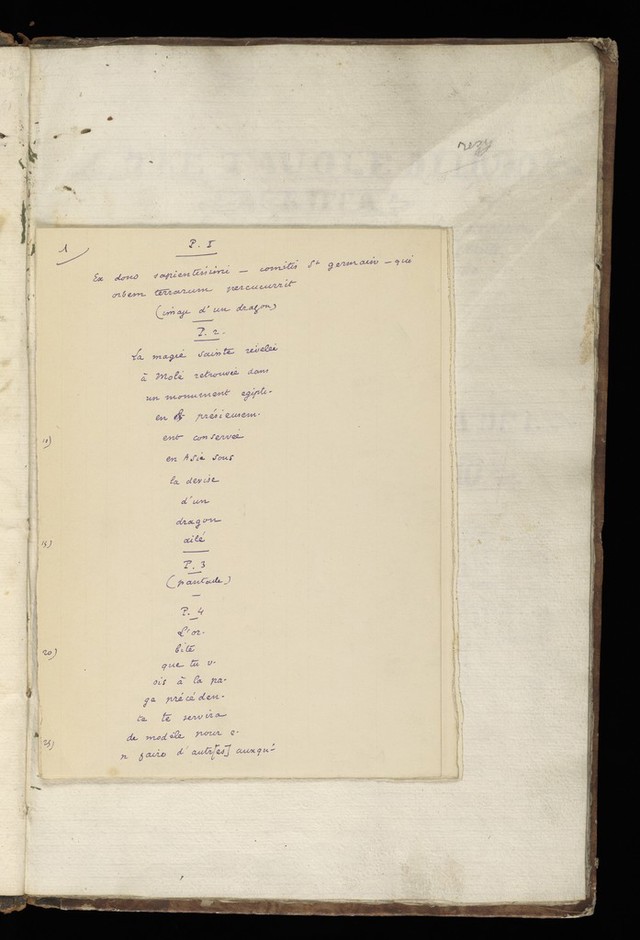 1
P. I
Ex dono sapientissimi — comitis St germain — qui
orbem terrarum percucurrit
(image d'un dragon)
P. 2.
La magie sainte révélée
à Moïse retrouvée dans
un monument egipti-
en & présieusem-
10) ent conservée
en Asie sous
la devise
d'un
dragon
15) ailé
P. 3
(pantacle)
P. 4
L'or-
20) bite
que tu v-
ois à la pa-
ge précéden-
te te servira
25) de modèle pour e-
n faire d'autr[es] auxqu-